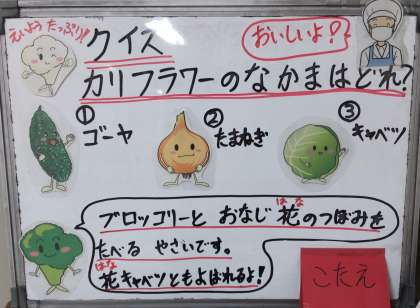 えいよう たっぷり!!
クイズ
おいしいよ?
カリフラワーのなかまはどれ?
①
ゴーヤ
②
たまねぎ
③
キャベツ
ブロッコリーと おなじ 花(はな)のつぼみを
たべる やさいです。
花(はな)キャベツともよばれるよ!
こたえ